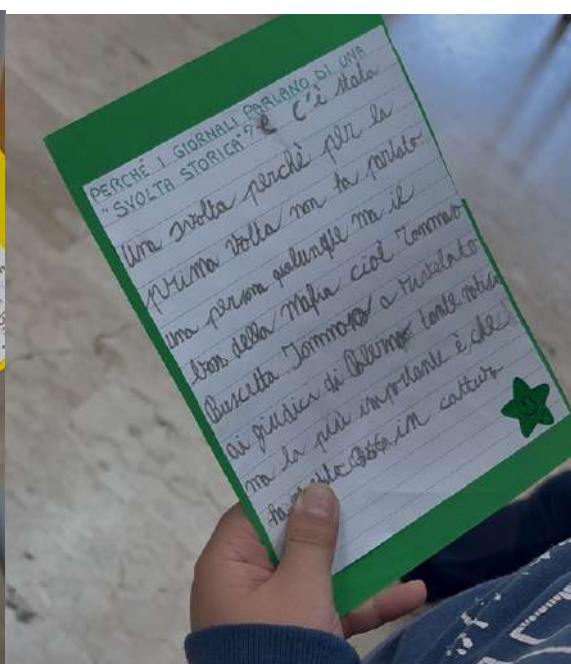 PERCHÉ I GIORNALI PARLANO DI UNA
"SVOLTA STORICA"? C'è stata
una svolta perchè per la
prima volta non ha parlato
una persona qualunque ma il
boss della mafia cioè Tommaso
Buscetta Tommaso a rivelato
ai giudici di Palermo tante notizie
ma la più importante è che
ha in cattura